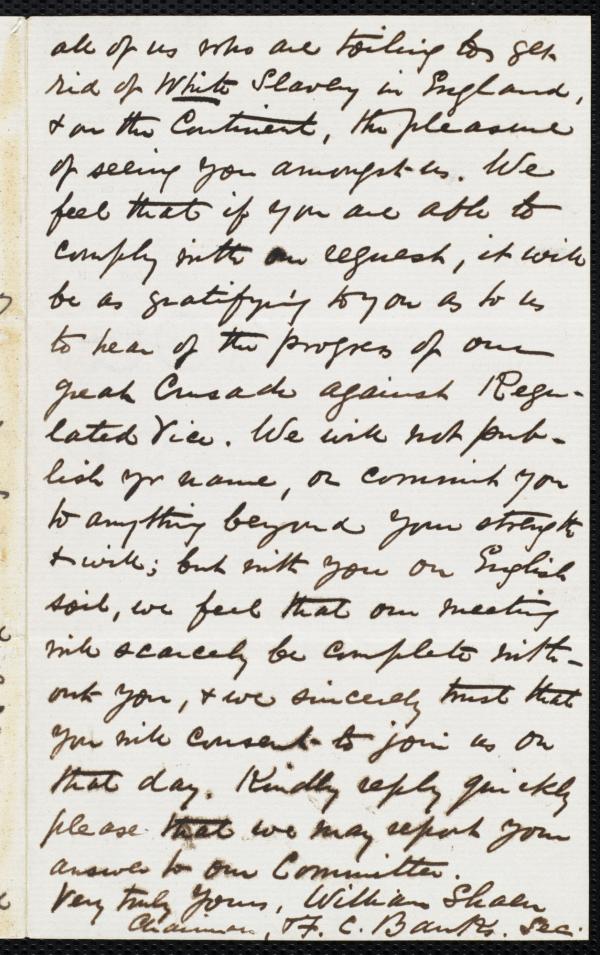 all of us who are toiling to get
rid of White Slavery in England,
& on the Continent, the pleasure
of seeing you amongst us. We
feel that if you are able to
comply with our request, it will
be as gratifying to you as to us
to hear of the progress of our
great Crusade against Regu-
lated Vice. We will not pub-
lish yr name, or commit you
to anything beyond your strength
& will; but with you on English
soil, we feel that our meeting
will scarcely be complete with-
out you, & we sincerely trust that
you will consent to join us on
that day. Kindly reply quickly
please that we may report your
answer to our Committee.
Very truly yours, William Shaen
Chairman, & F. C. Banks. Sec.